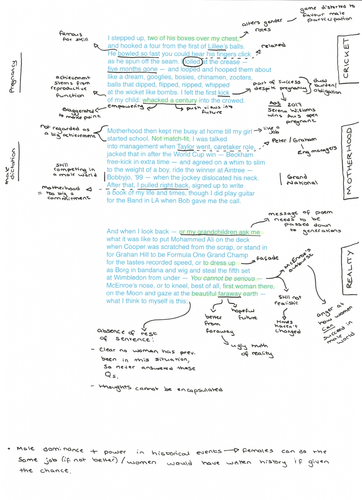 famous for skill
alters gender roles
game distorted to favour male participation
CRICKET
I stepped up, two of his boxes over my chest,
and hooked a four from the first of Lillee's balls.
He bowled so fast you could hear his fingers click
as he spun off the seam. I lolled at the crease
five months gone — and looped and hooped them about
like a dream, googlies, bosies, chinamen, zooters,
balls that dipped, flipped, nipped, whipped
at the wicket like bombs. I felt the first kick
of my child; whacked a century into the crowd.
relaxed
Pregnancy
achievement stems from reproductive function
exaggerated to make point
empowering
part of success despite pregnancy
dual burden/ obligation
Aus 2017 Serena Williams wins Aus open pregnant
MOTHERHOOD
Not regarded as a big achievement
Motherhood then kept me busy at home till my girl
started school. Not match-fit, I was talked
into management when Taylor went, caretaker role,
jacked that in after the World Cup win — Beckham
free-kick in extra time — and agreed on a whim to slim
to the weight of a boy, ride the winner at Aintree —
Bobbyjo, '99 — when the jockey dislocated his neck.
After that, I pulled right back, signed up to write
a book of my life and times, though I did play guitar
for the Band in LA when Bob gave me the call.
Peter / Graham
Eng managers
Grand National
male domination
still competing in a man's world
motherhood = too big a commitment
message of poem needs to be passed down to generations
REALITY
And when I look back — or my grandchildren ask me
what it was like to put Mohammed Ali on the deck
when Cooper was scratched from the scrap, or stand in
for Graham Hill to be Formula One Grand Champ
for the fastest recorded speed, or to dress up
as Borg in bandana and wig and steal the fifth set
at Wimbledon from under — You cannot be serious —
McEnroe's nose, or to kneel, best of all, first woman there,
on the Moon and gaze at the beautiful faraway earth —
what I think to myself is this:
facade
McEnroe's outburst
Still not realistic
times haven't changed
anger at how women can succeed in male world
better from faraway
hopeful future
ugly truth of reality
absence of rest of sentence:
- Clear no woman has prev. been in this situation, so never answered these Qs.
- thoughts cannot be encapsulated
• Male dominance + power in historical events → Females can do the
same job (if not better) / women would have written history if given
the chance.